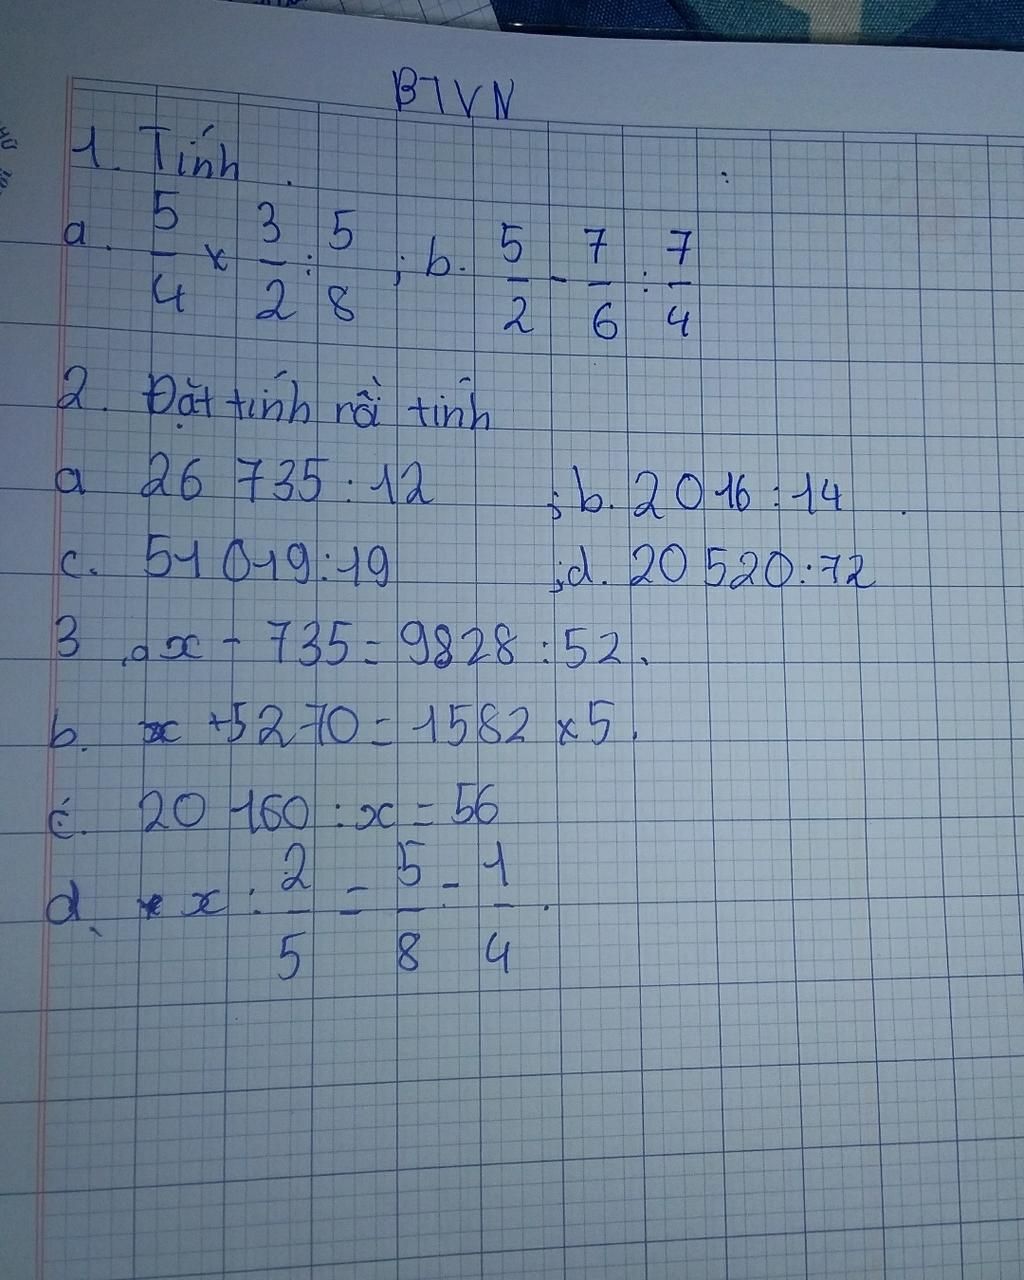 BTVN
1. Tính.
a. 5/4 x 3/2 : 5/8 ; b. 5/2 - 7/6 : 7/4
2. Đặt tính rồi tính
a 26 735 : 12 ; b. 2016 : 14
c. 51 019 : 19 ; d. 20 520 : 72
3 .a x - 735 = 9828 : 52.
b. x + 5270 = 1582 x 5.
c. 20 160 : x = 56
d. x : 2/5 = 5/8 - 1/4.